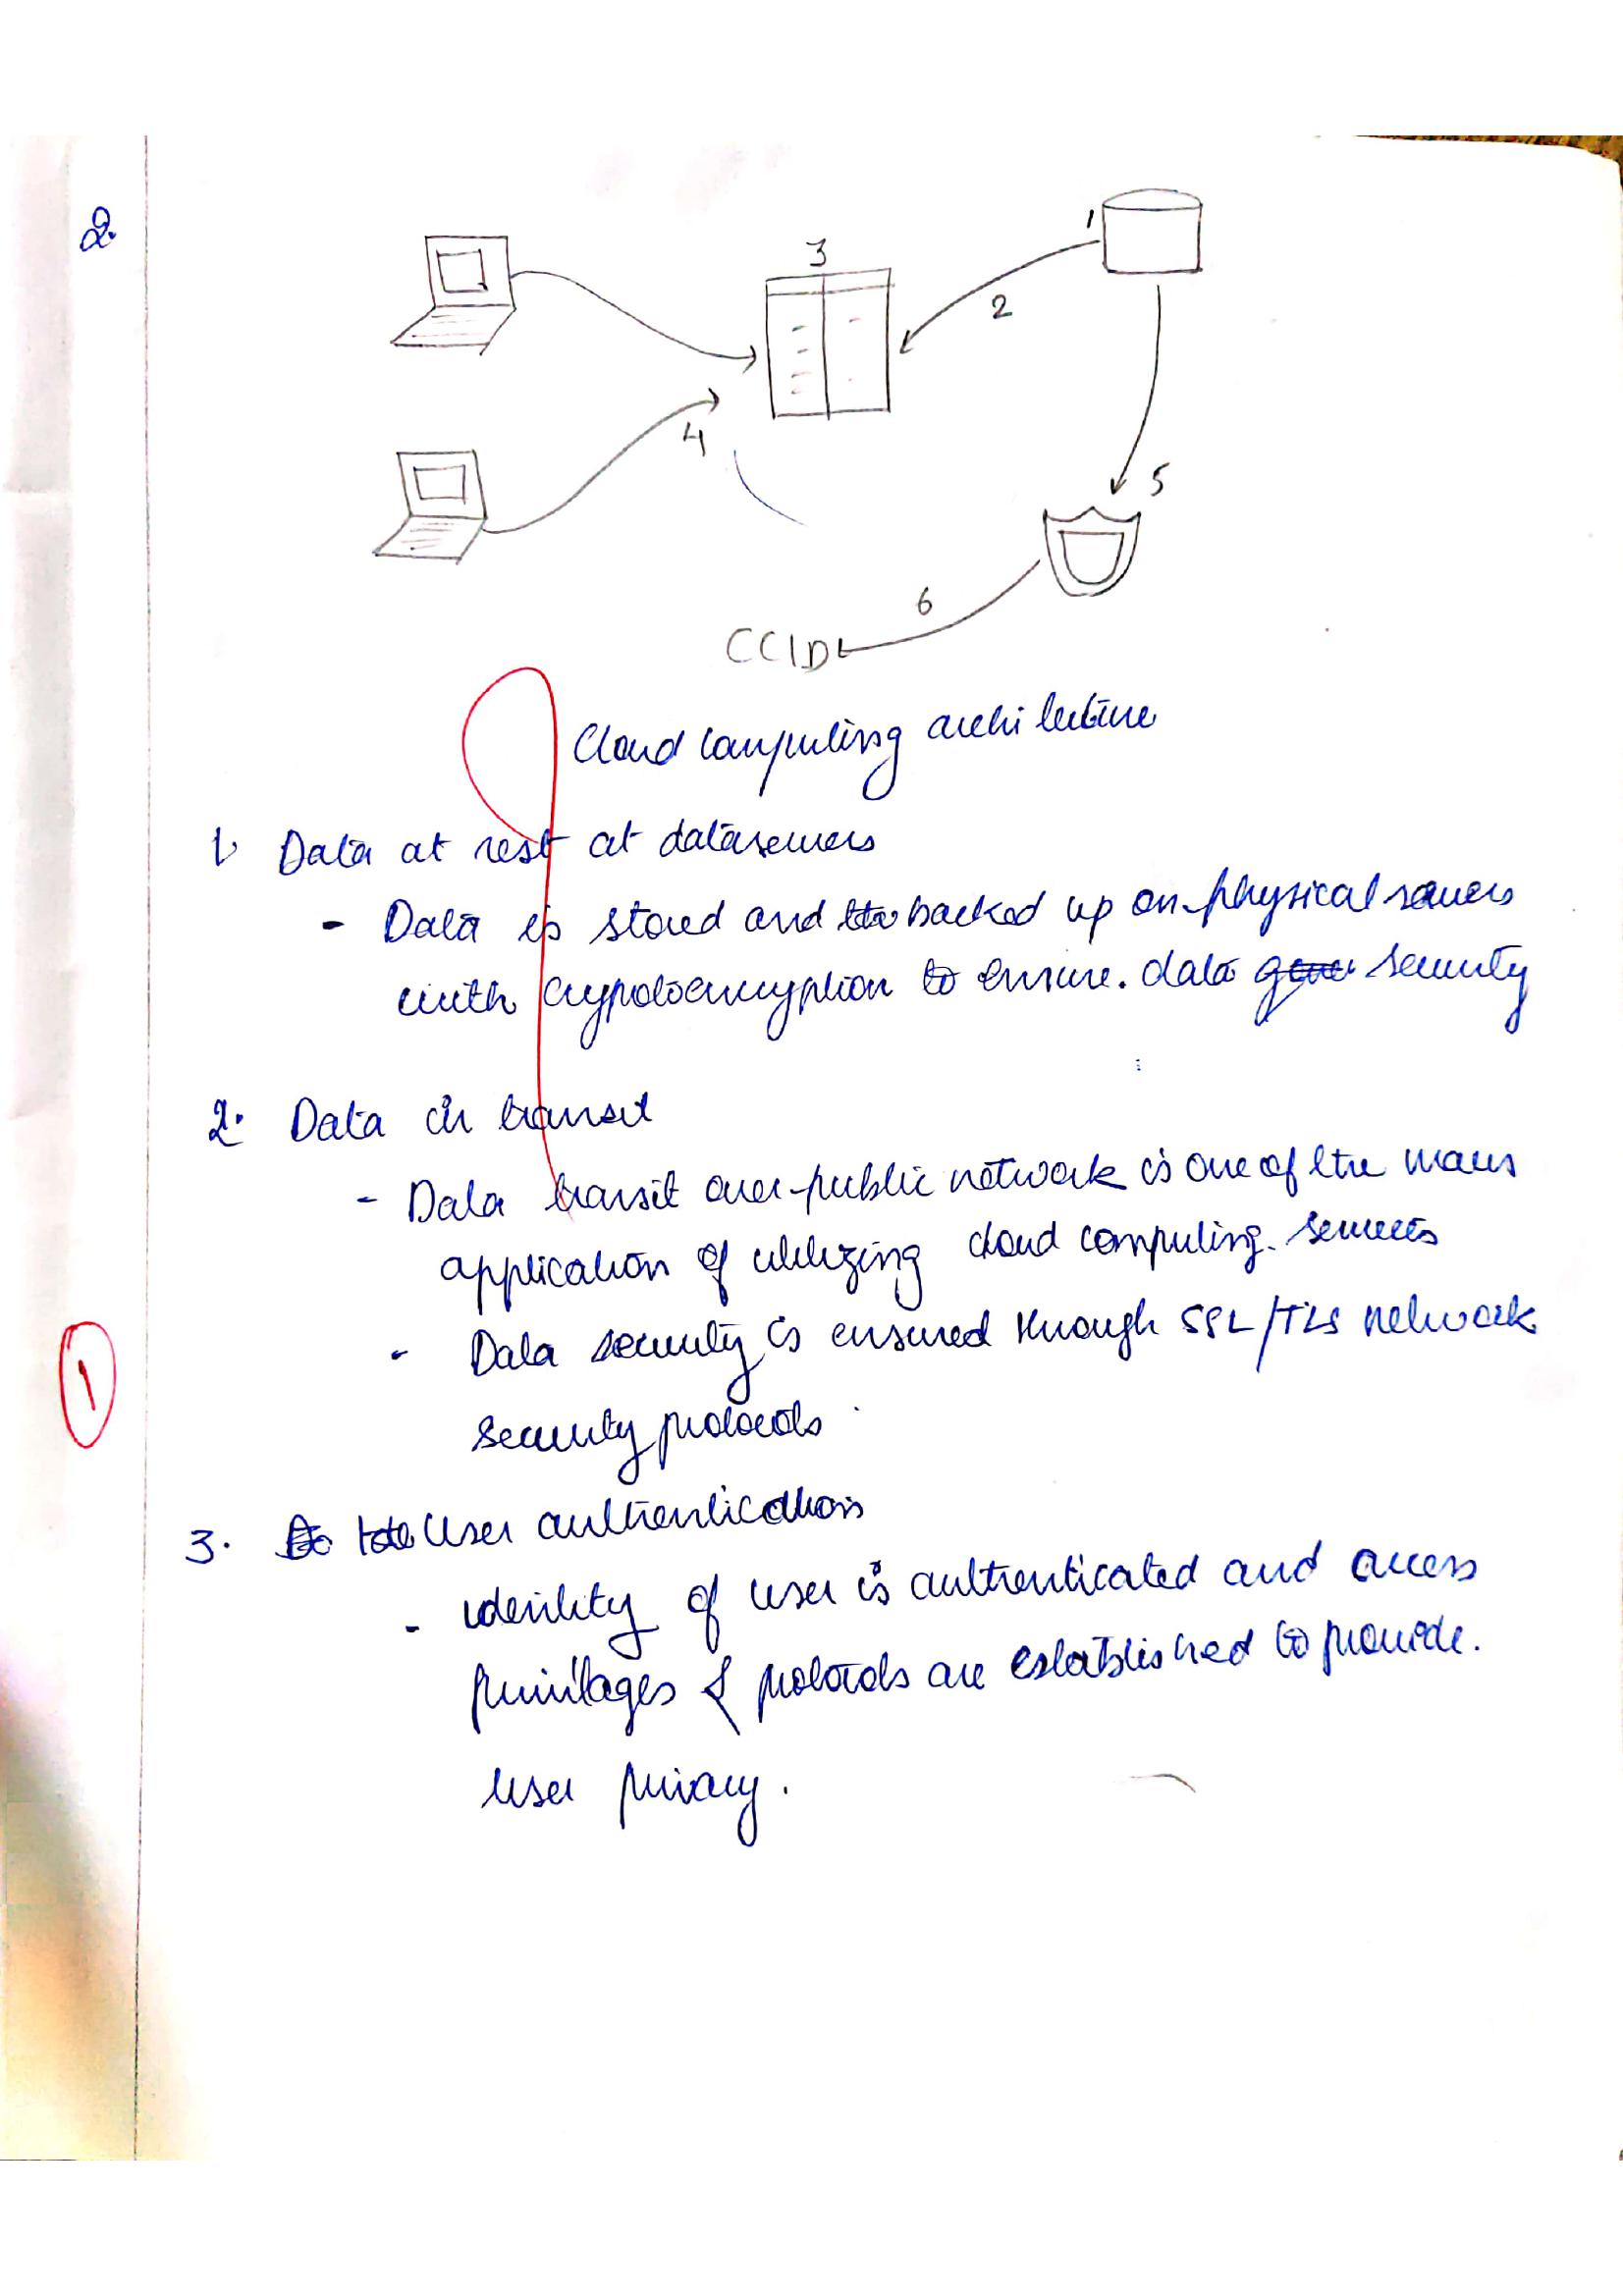 2.
1
3
2
4
5
6
CCID
Cloud computing architecture
1. Data at rest at dataservers
- Data is stored and backed up on physical servers
with cryptoencryption to ensure. data security
2. Data in transit
- Data transit over public network is one of the main
application of utilizing cloud computing. services
- Data security is ensured through SSL/TLS network
security protocols
1
3. User authentication
- identity of user is authenticated and access
privilages & protocols are established to provide.
user privacy.